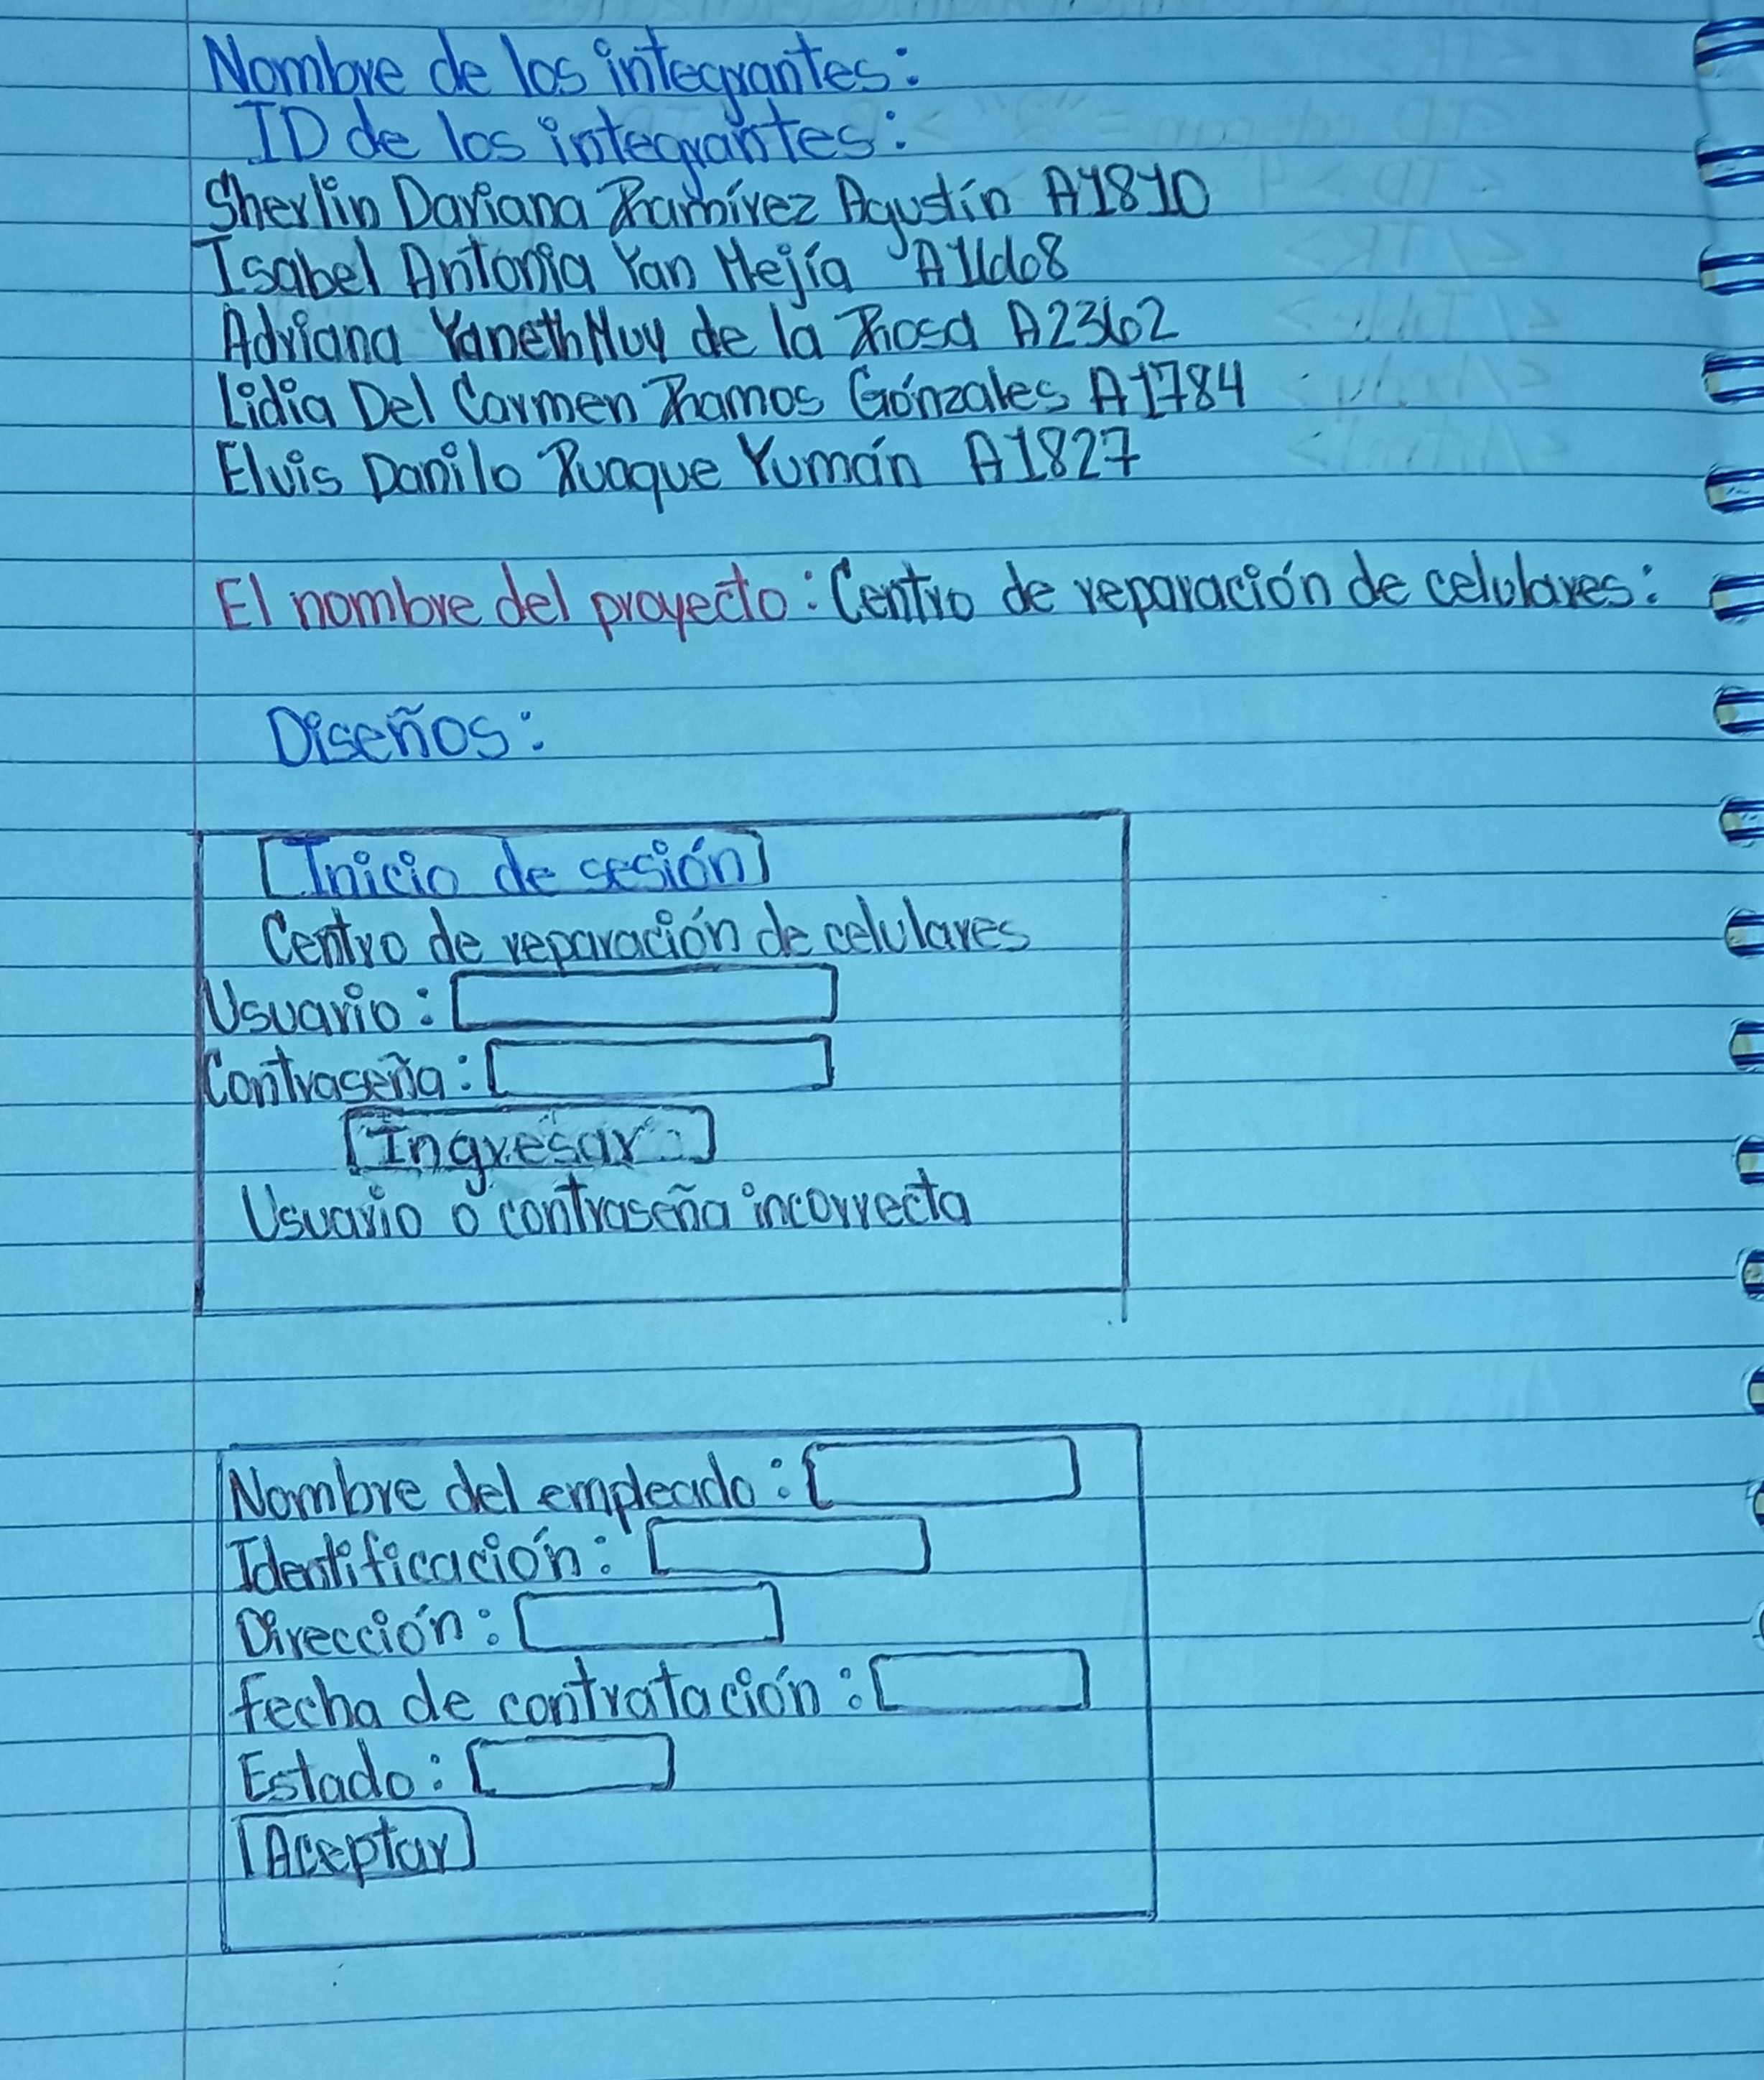 Nombre de los integrantes:
ID de los integrantes:
Sherlin Dariana Ramírez Agustín A1810
Isabel Antonia Yan Mejía
Adriana Yaneth Muy de la Rosa A2362
Lidia Del Carmen Ramos Gónzales A1784
Elvis Danilo Ruaque Yumán A1827
El nombre del proyecto: Centro de reparación de celulares:
Diseños:
[Inicio de sesión]
Centro de reparación de celulares
Usuario:
Contraseña:
[Ingresar]
Usuario o contraseña incorrecta
Nombre del empleado:
Identificación:
Dirección:
fecha de contratación:
Estado:
[Aceptar]